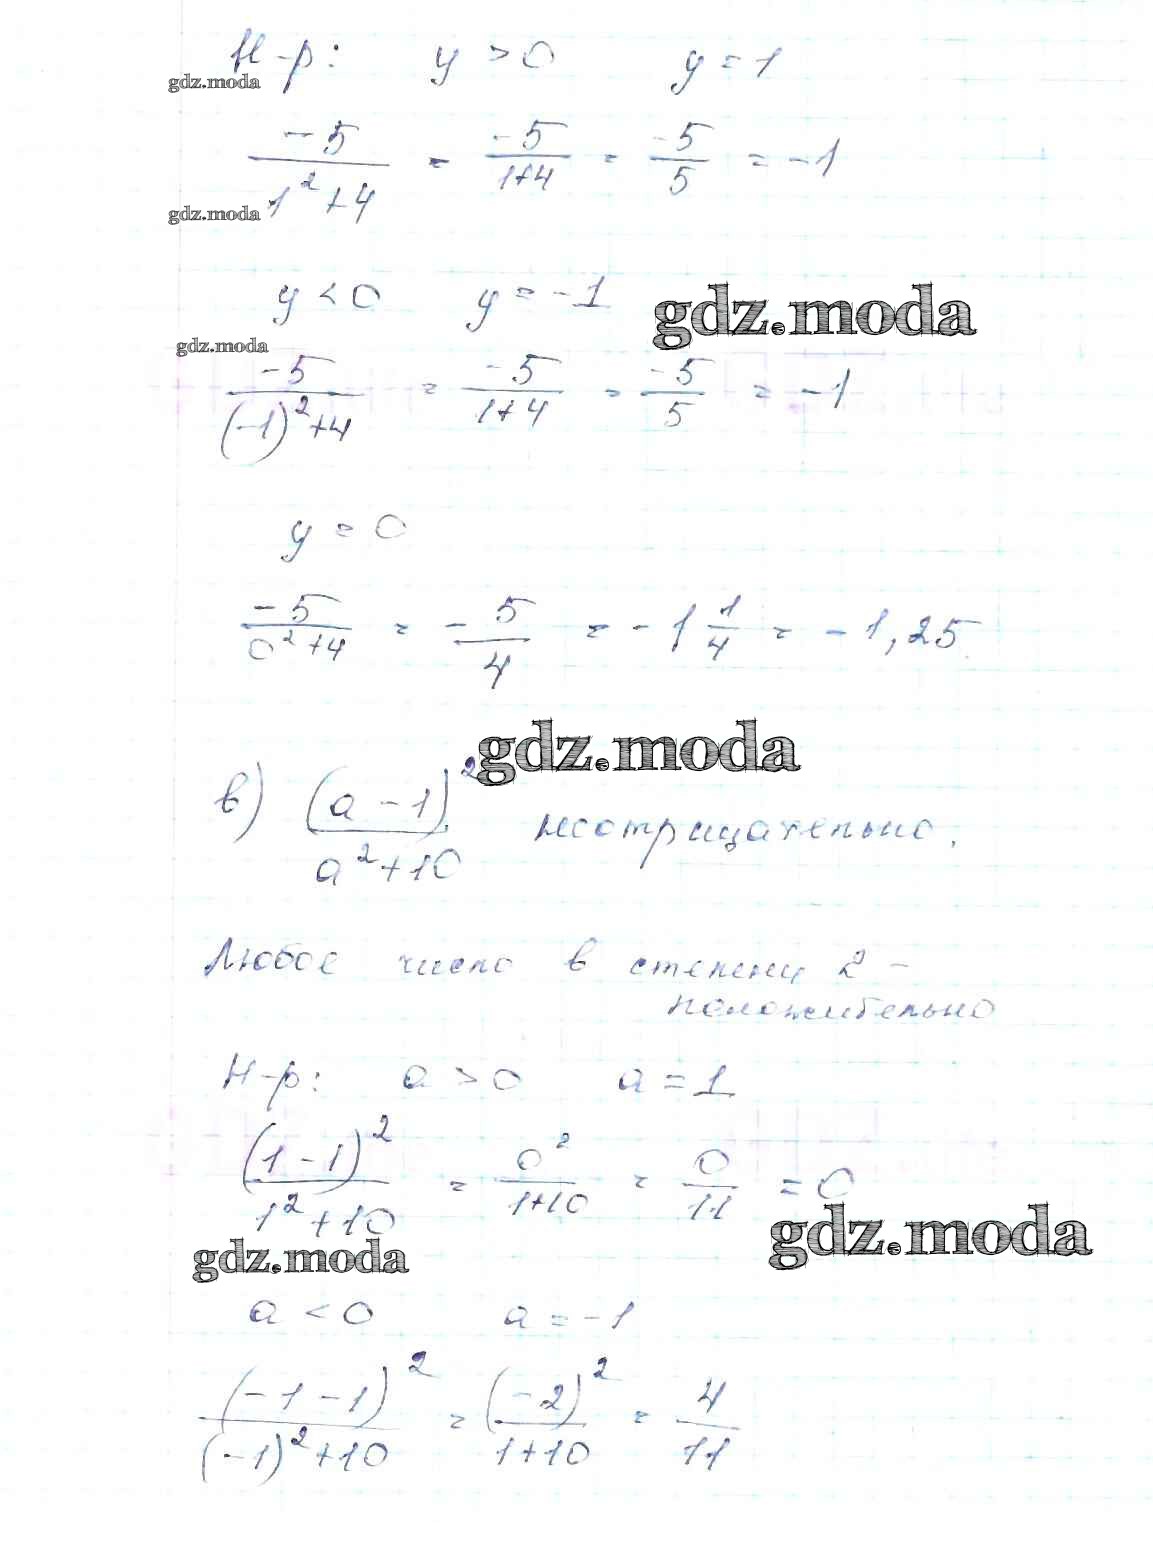 Н-р: y > 0 y = 1
gdz.moda
-5/(1²+4) = -5/(1+4) = -5/5 = -1
gdz.moda
y < 0 y = -1
gdz.moda
gdz.moda
-5/((-1)²+4) = -5/(1+4) = -5/5 = -1
y = 0
-5/(0²+4) = -5/4 = -1 1/4 = -1,25
gdz.moda
в) (a-1)²/(a²+10) неотрицательно.
Любое число в степени 2 -
положительно
Н-р: a > 0 a = 1
(1-1)²/(1²+10) = 0²/(1+10) = 0/11 = 0
gdz.moda
gdz.moda
a < 0 a = -1
(-1-1)²/((-1)²+10) = (-2)²/(1+10) = 4/11